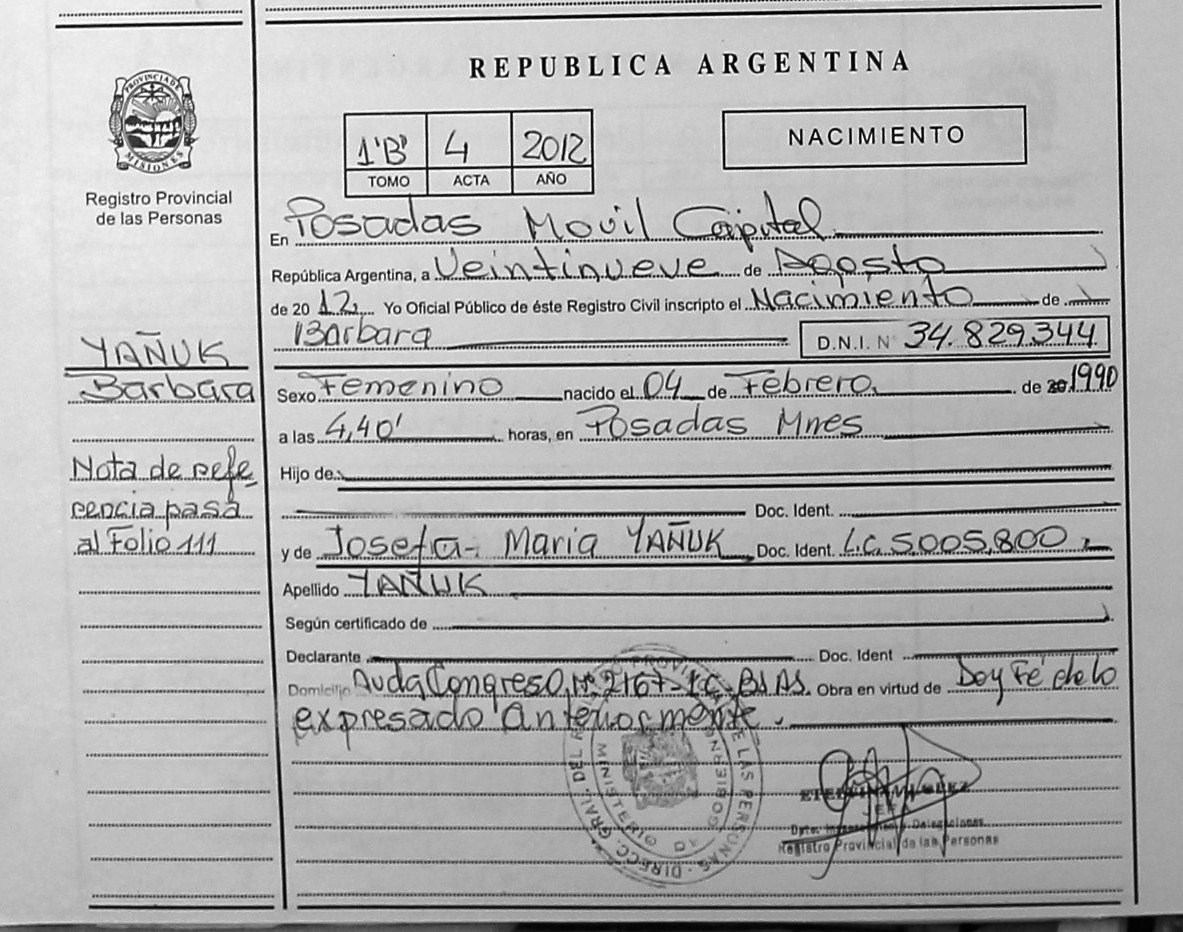 REPUBLICA ARGENTINA
PROVINCIA DE MISIONES
Registro Provincial
de las Personas
1'B' 4 2012
TOMO ACTA AÑO
NACIMIENTO
En Posadas Movil Capital
República Argentina, a Veintinueve de Agosto
de 2012 Yo Oficial Público de éste Registro Civil inscripto el Nacimiento de
Barbara D.N.I. Nº 34.829.344
YAÑUK
Barbara
Sexo Femenino nacido el 04 de Febrero de 20 1990
a las 4,40' horas, en Posadas Mnes
Nota de refe
rencia pasa
al Folio 111
Hijo de
Doc. Ident.
y de Josefa Maria YAÑUK Doc. Ident. L.C. 5.005.800
Apellido YAÑUK
Según certificado de
Declarante Doc. Ident
Domicilio Avda Congreso Nº 2167 - C. BS AS. Obra en virtud de Doy Fé de lo
expresado anteriormente.
DIRECC. GRAL. DEL REGISTRO PROVINCIAL DE LAS PERSONAS
MINISTERIO DE GOBIERNO
JEFA
Dpto. Delegaciones
Registro Provincial de las Personas